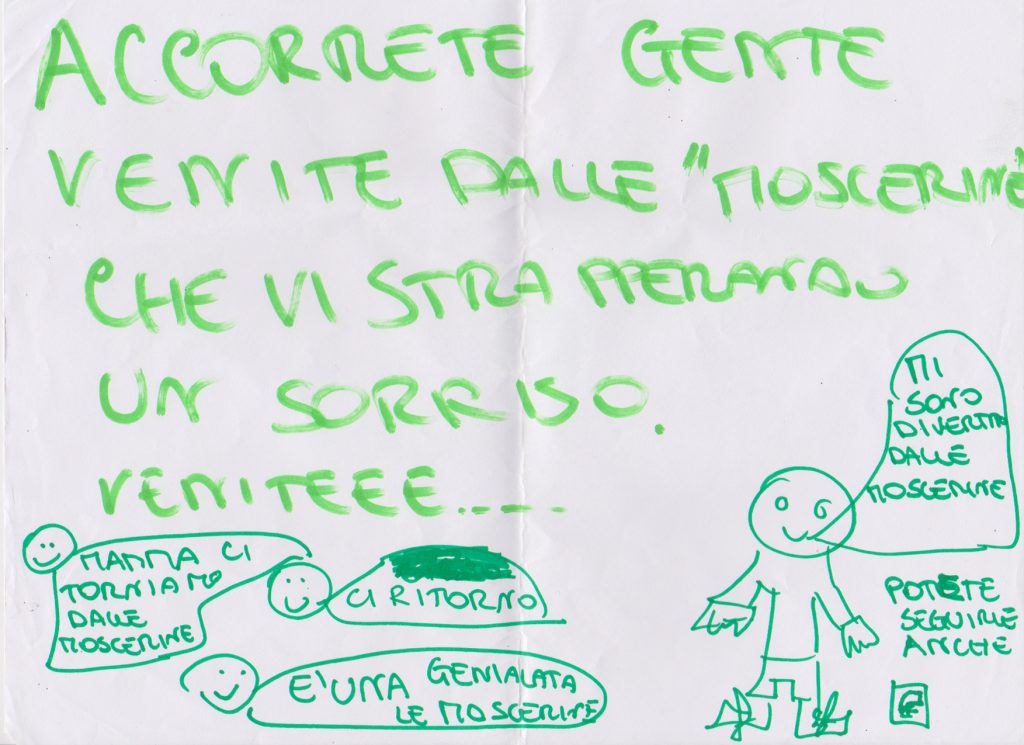 ACCORRETE GENTE
VENITE DALLE "MOSCERINE"
CHE VI STRAPPERANNO
UN SORRISO.
VENITEEE.....
MI
SONO
DIVERTITA
DALLE
MOSCERINE
MAMMA CI
TORNIAMO
DALLE
MOSCERINE
CI RITORNO
E' UNA GENIALATA
LE MOSCERINE
POTETE
SEGUIRLE
ANCHE